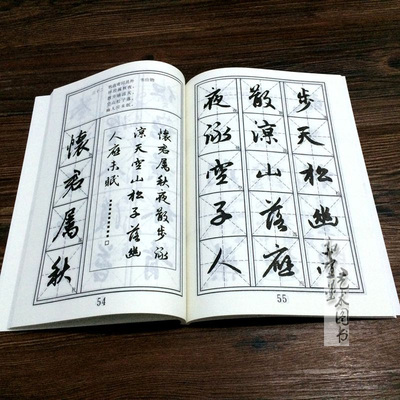 懷君屬秋
懷君屬秋夜散步詠
涼天空山松子落幽
人應未眠
54
夜散步
詠涼天
空山松
子落幽
人應未
55
图书